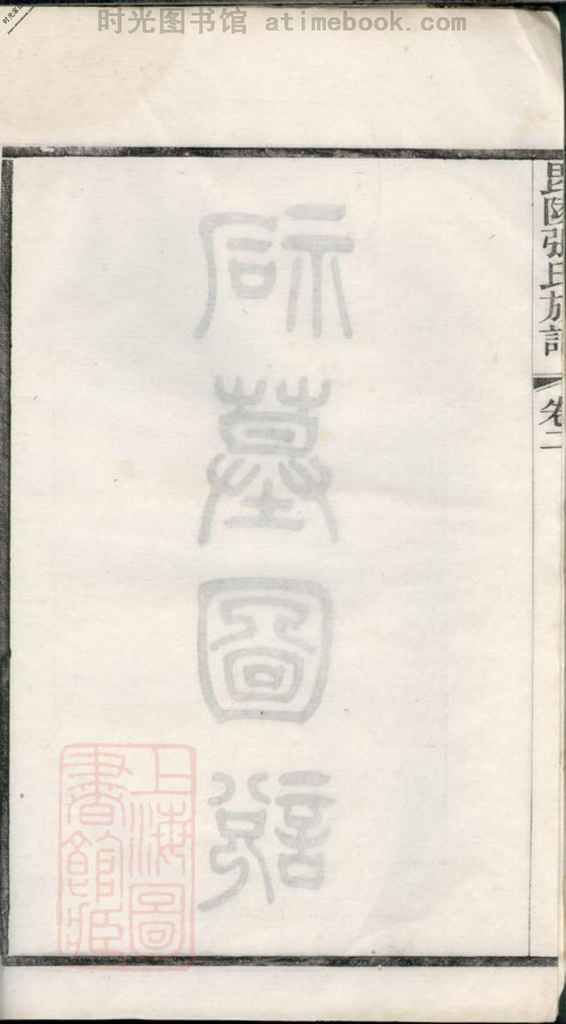 时光图书馆 atimebook.com
毘陵張氏族譜
卷二
祠墓圖說
上海圖
書館藏